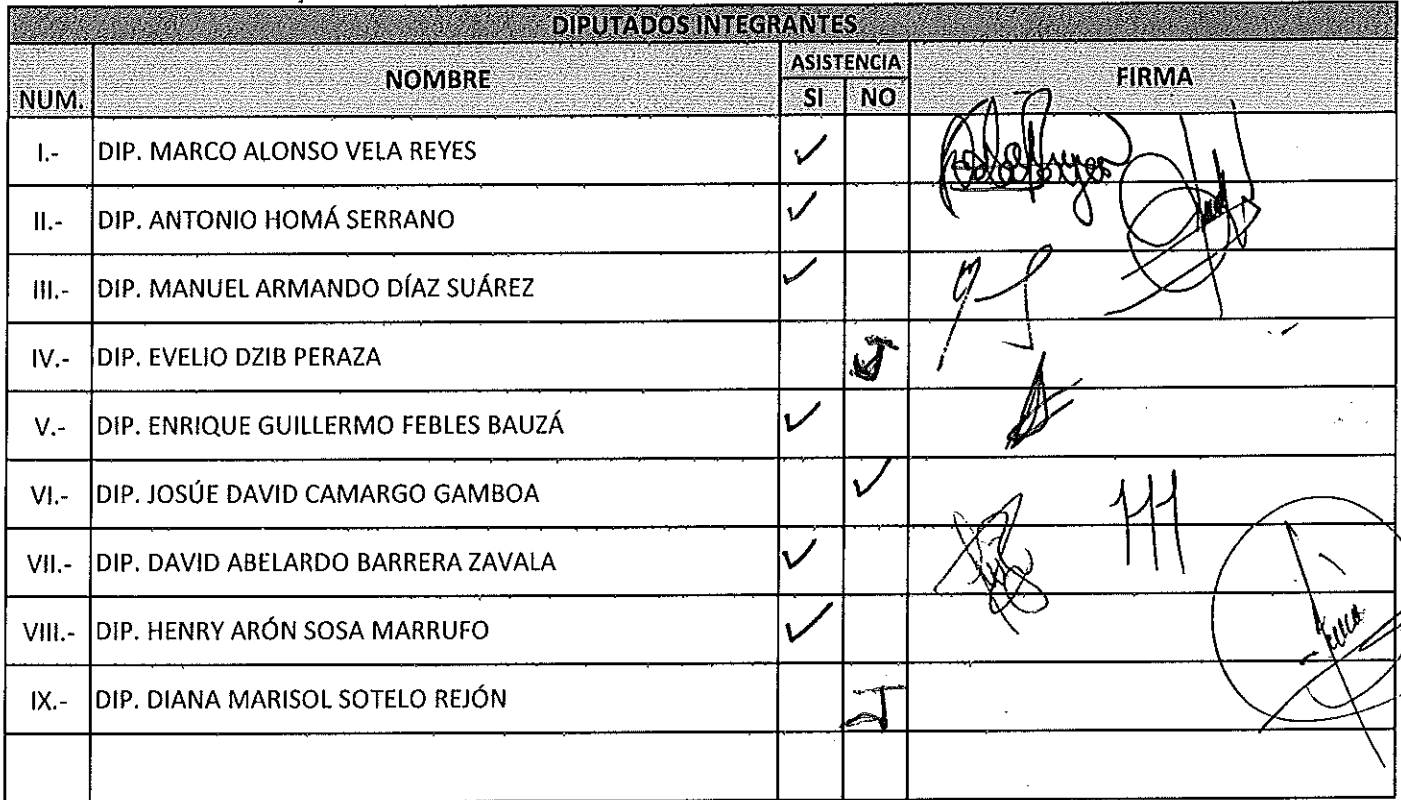 DIPUTADOS INTEGRANTES
NUM. NOMBRE ASISTENCIA SI NO FIRMA
I.- DIP. MARCO ALONSO VELA REYES ✓
II.- DIP. ANTONIO HOMÁ SERRANO ✓
III.- DIP. MANUEL ARMANDO DÍAZ SUÁREZ ✓
IV.- DIP. EVELIO DZIB PERAZA
V.- DIP. ENRIQUE GUILLERMO FEBLES BAUZÁ ✓
VI.- DIP. JOSÚE DAVID CAMARGO GAMBOA ✓
VII.- DIP. DAVID ABELARDO BARRERA ZAVALA ✓
VIII.- DIP. HENRY ARÓN SOSA MARRUFO ✓
IX.- DIP. DIANA MARISOL SOTELO REJÓN